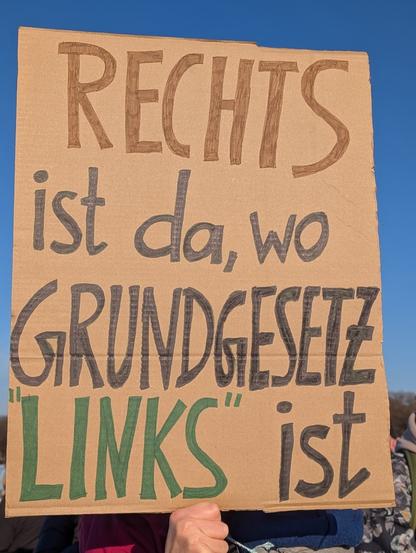 RECHTS
ist da, wo
GRUNDGESETZ
"LINKS" ist